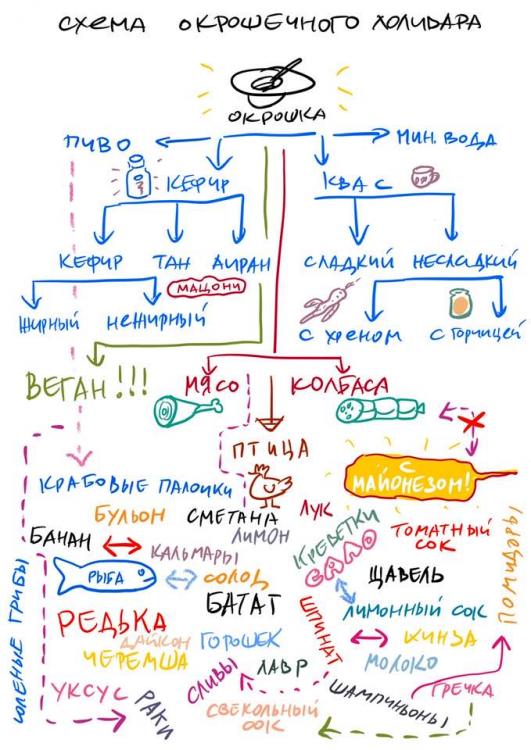 СХЕМА ОКРОШЕЧНОГО ХОЛИВАРА
ОКРОШКА
ПИВО
МИН. ВОДА
КЕФИР
КВАС
КЕФИР ТАН АЙРАН
СЛАДКИЙ НЕСЛАДКИЙ
МАЦОНИ
ЖИРНЫЙ НЕЖИРНЫЙ
С ХРЕНОМ С ГОРЧИЦЕЙ
ВЕГАН!!!
МЯСО КОЛБАСА
ПТИЦА
С МАЙОНЕЗОМ!
КРАБОВЫЕ ПАЛОЧКИ
БУЛЬОН СМЕТАНА ЛУК
БАНАН КАЛЬМАРЫ ЛИМОН
КРЕВЕТКИ
ТОМАТНЫЙ СОК
САЛО
РЫБА СОЛОД ЩАВЕЛЬ
ПОМИДОРЫ
СОЛЕНЫЕ ГРИБЫ
РЕДЬКА БАТАТ ЛИМОННЫЙ СОК
ДАЙКОН ГОРОШЕК ШПИНАТ КИНЗА
ЧЕРЕМША ЛАВР МОЛОКО
УКСУС РАКИ СЛИВЫ
ШАМПИНЬОНЫ ГРЕЧКА
СВЕКОЛЬНЫЙ СОК